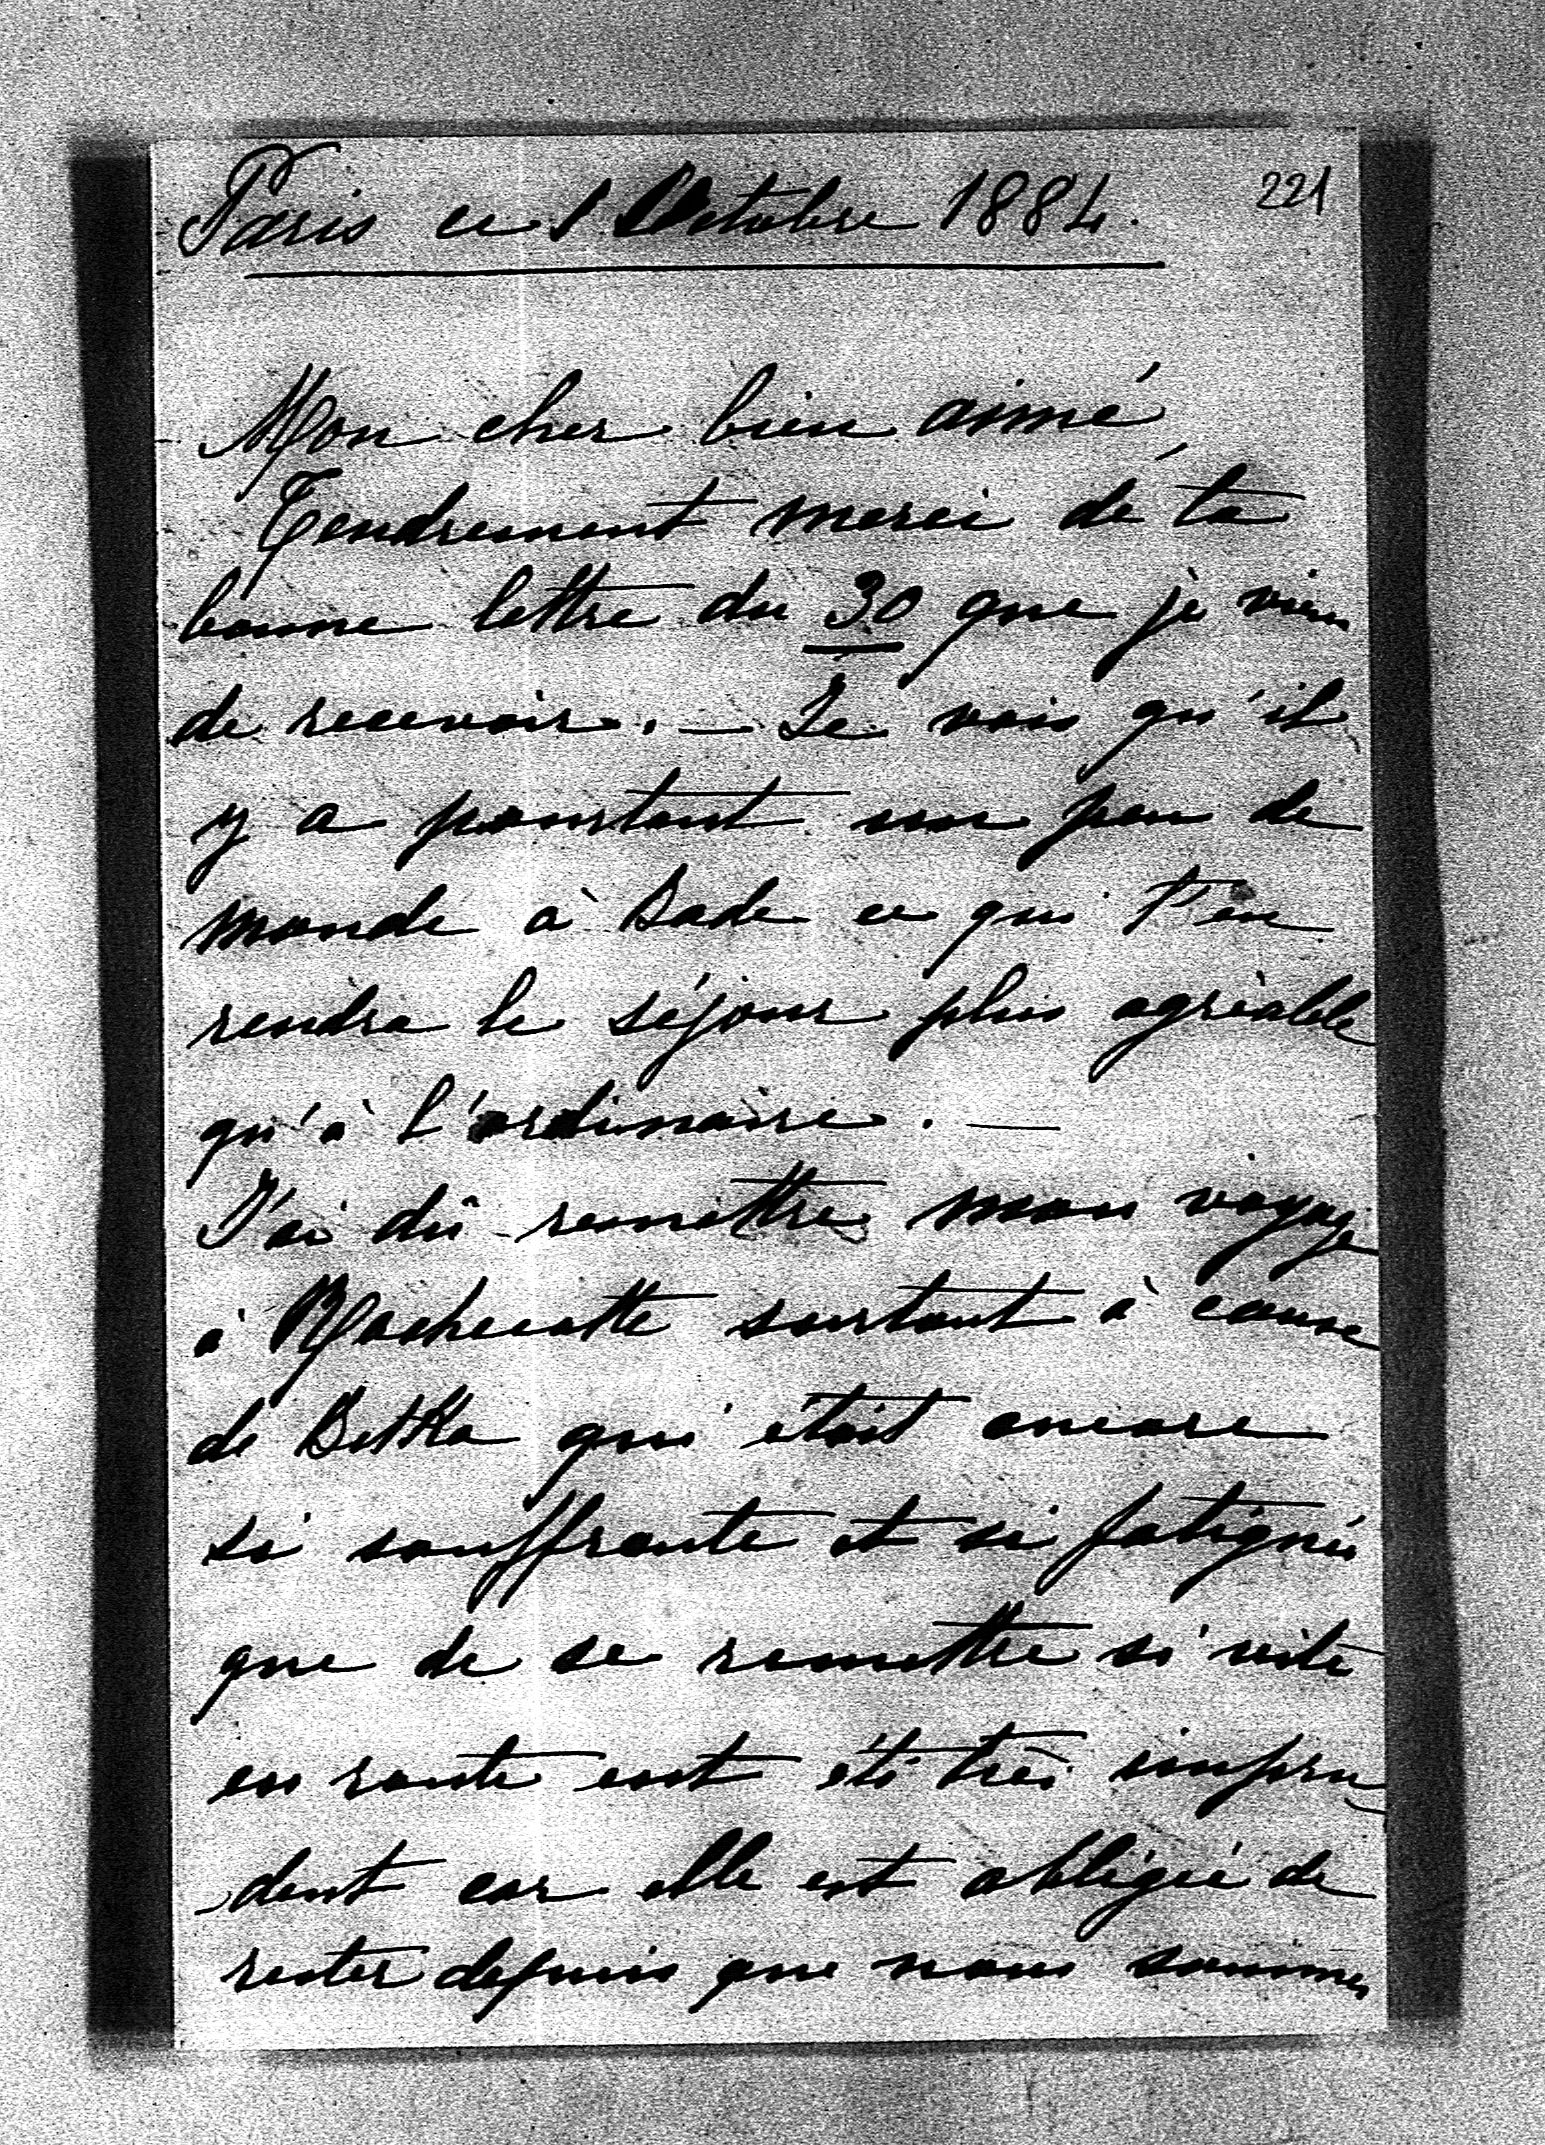 Paris ce 1 Octobre 1884.
221
Mon cher bien aimé,
Tendrement merci de ta
bonne lettre du 30 que je viens
de recevoir. — Je vois qu'il
y a pourtant un peu de
monde à Sade ce qui t'en
rendra le séjour plus agréable
qu'à l'ordinaire. —
J'ai dû remettre mon voyage
à Rochecotte surtout à cause
de Betka qui était encore
si souffrante et si fatiguée
que de se remettre si vite
en route eut été très impru
dent car elle est obligée de
rester depuis que nous sommes